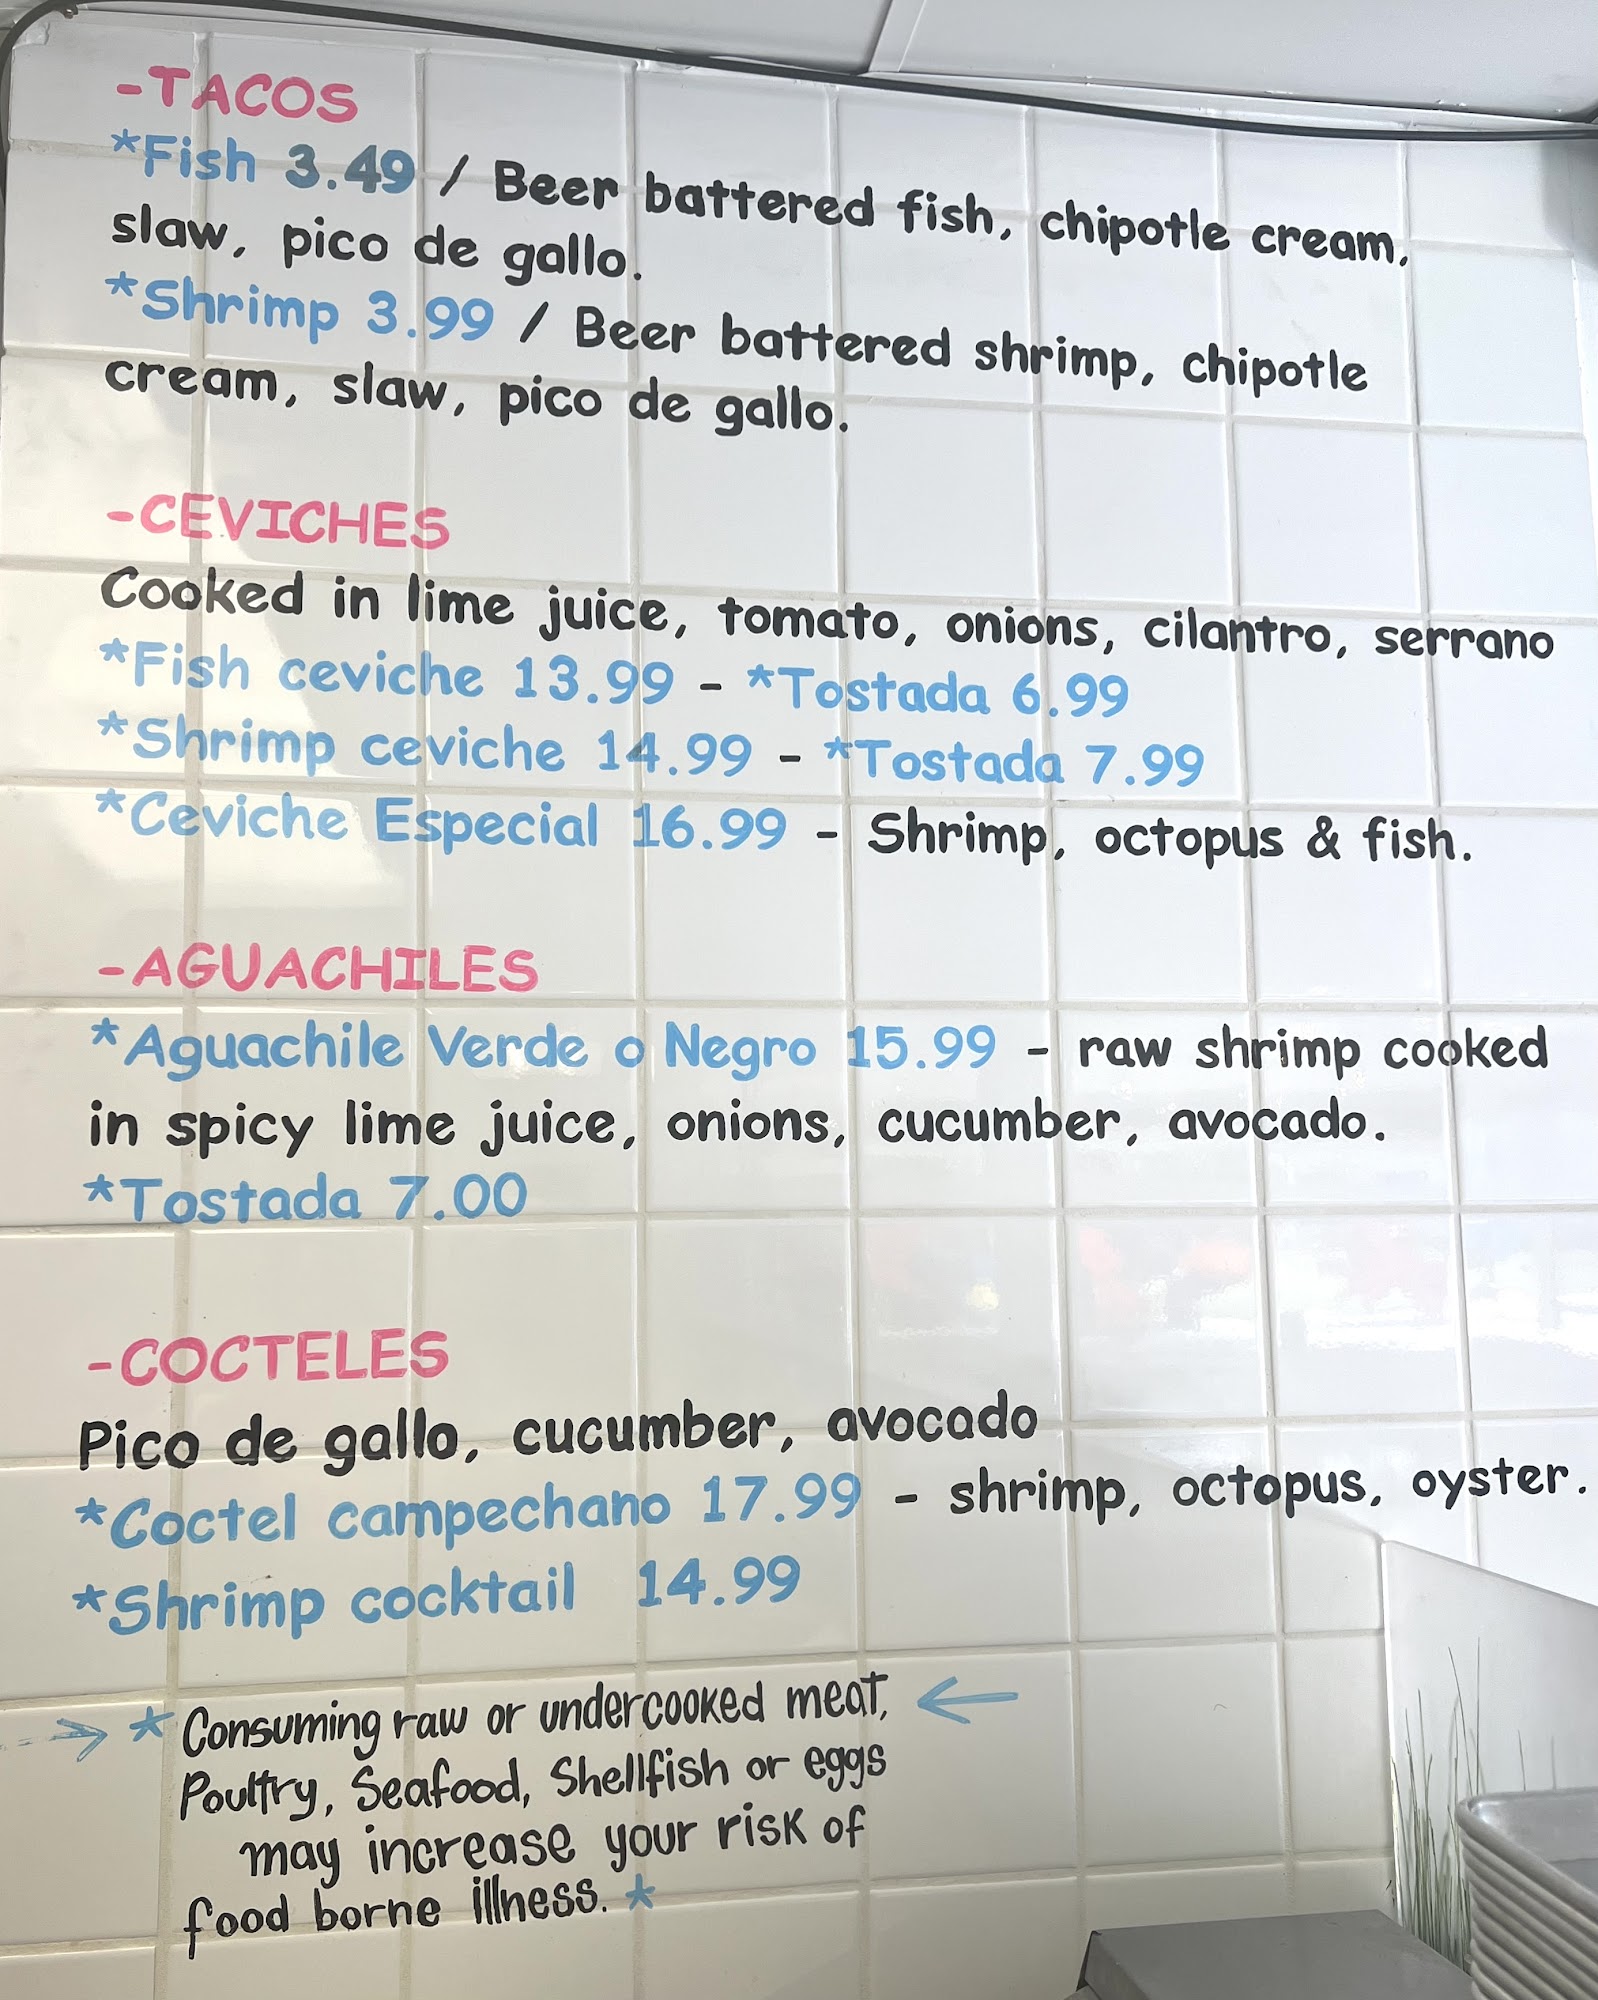 -TACOS
*Fish 3.49 / Beer battered fish, chipotle cream,
slaw, pico de gallo.
*Shrimp 3.99 / Beer battered shrimp, chipotle
cream, slaw, pico de gallo.
-CEVICHES
Cooked in lime juice, tomato, onions, cilantro, serrano
*Fish ceviche 13.99 - *Tostada 6.99
*Shrimp ceviche 14.99 - *Tostada 7.99
*Ceviche Especial 16.99 - Shrimp, octopus & fish.
-AGUACHILES
*Aguachile Verde o Negro 15.99 - raw shrimp cooked
in spicy lime juice, onions, cucumber, avocado.
*Tostada 7.00
-COCTELES
Pico de gallo, cucumber, avocado
*Coctel campechano 17.99 - shrimp, octopus, oyster.
*Shrimp cocktail 14.99
* Consuming raw or undercooked meat,
Poultry, Seafood, Shellfish or eggs
may increase your risk of
food borne illness. *